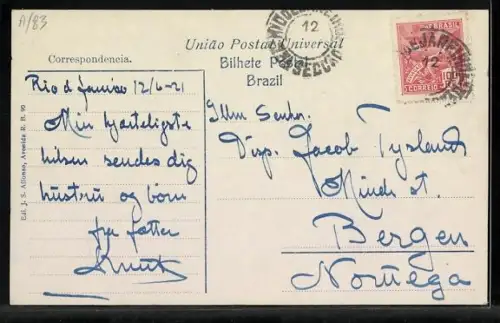 A/83
União Postal Universal
Bilhete Postal
Brazil
Correspondencia.
Rio d Janeiro 12/6-21
Min hjerteligste
hilsen sendes dig
hustru og børn
fra fætter
Knut
Illm Senhr.
Disp. Jacob Tysland
Minde st.
Bergen
Noruega
BRASIL
CORREIO
100
12
12
Ed. J. S. Affonso, Avenida R. B. 90